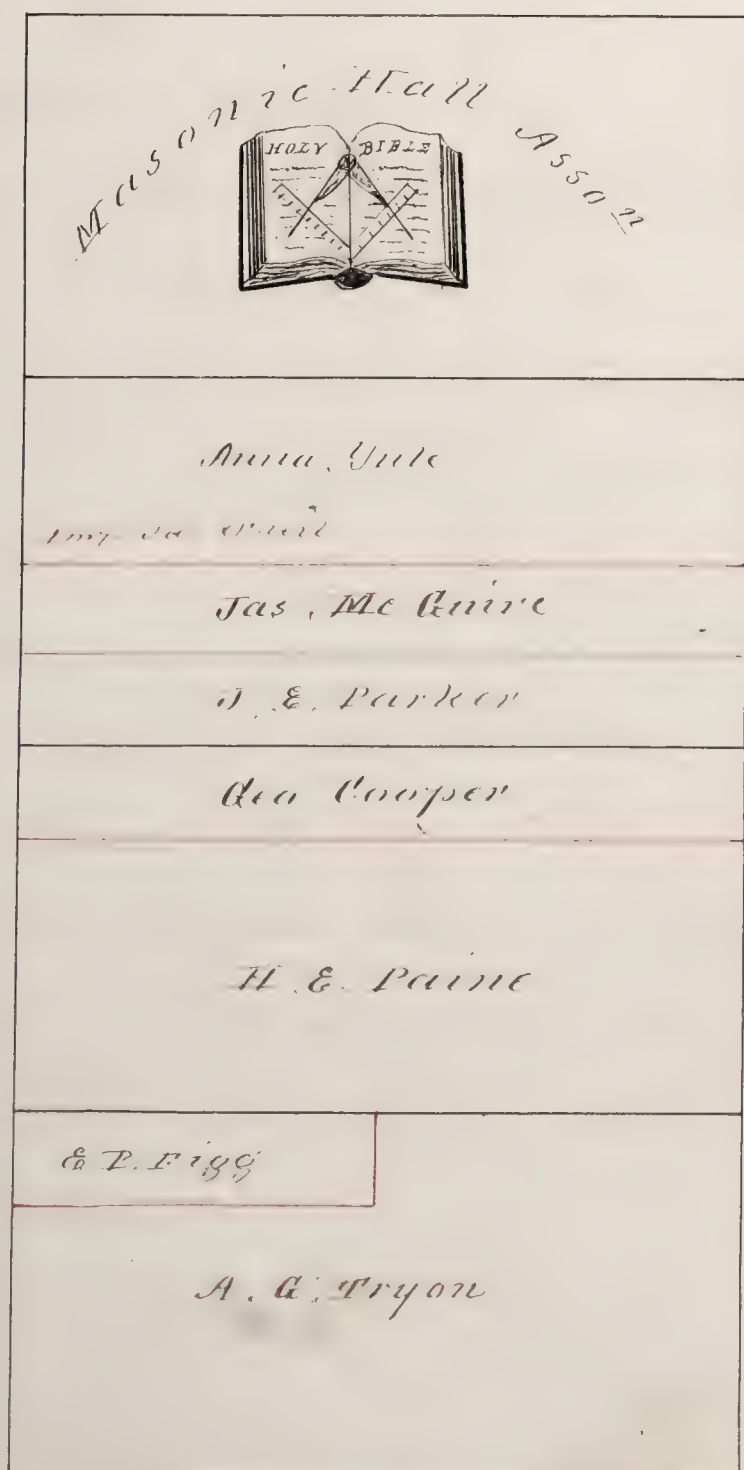 Masonic Hall Asson
HOLY BIBLE
Anna Yule
Imp to
Jas. Mc Guire
J. E. Parker
Geo Cooper
H. E. Paine
E P. Figg
A. G. Tryon